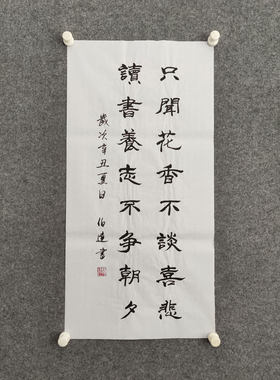 只聞花香不談喜悲
讀書養志不争朝夕
歲次辛丑夏日 伯達書